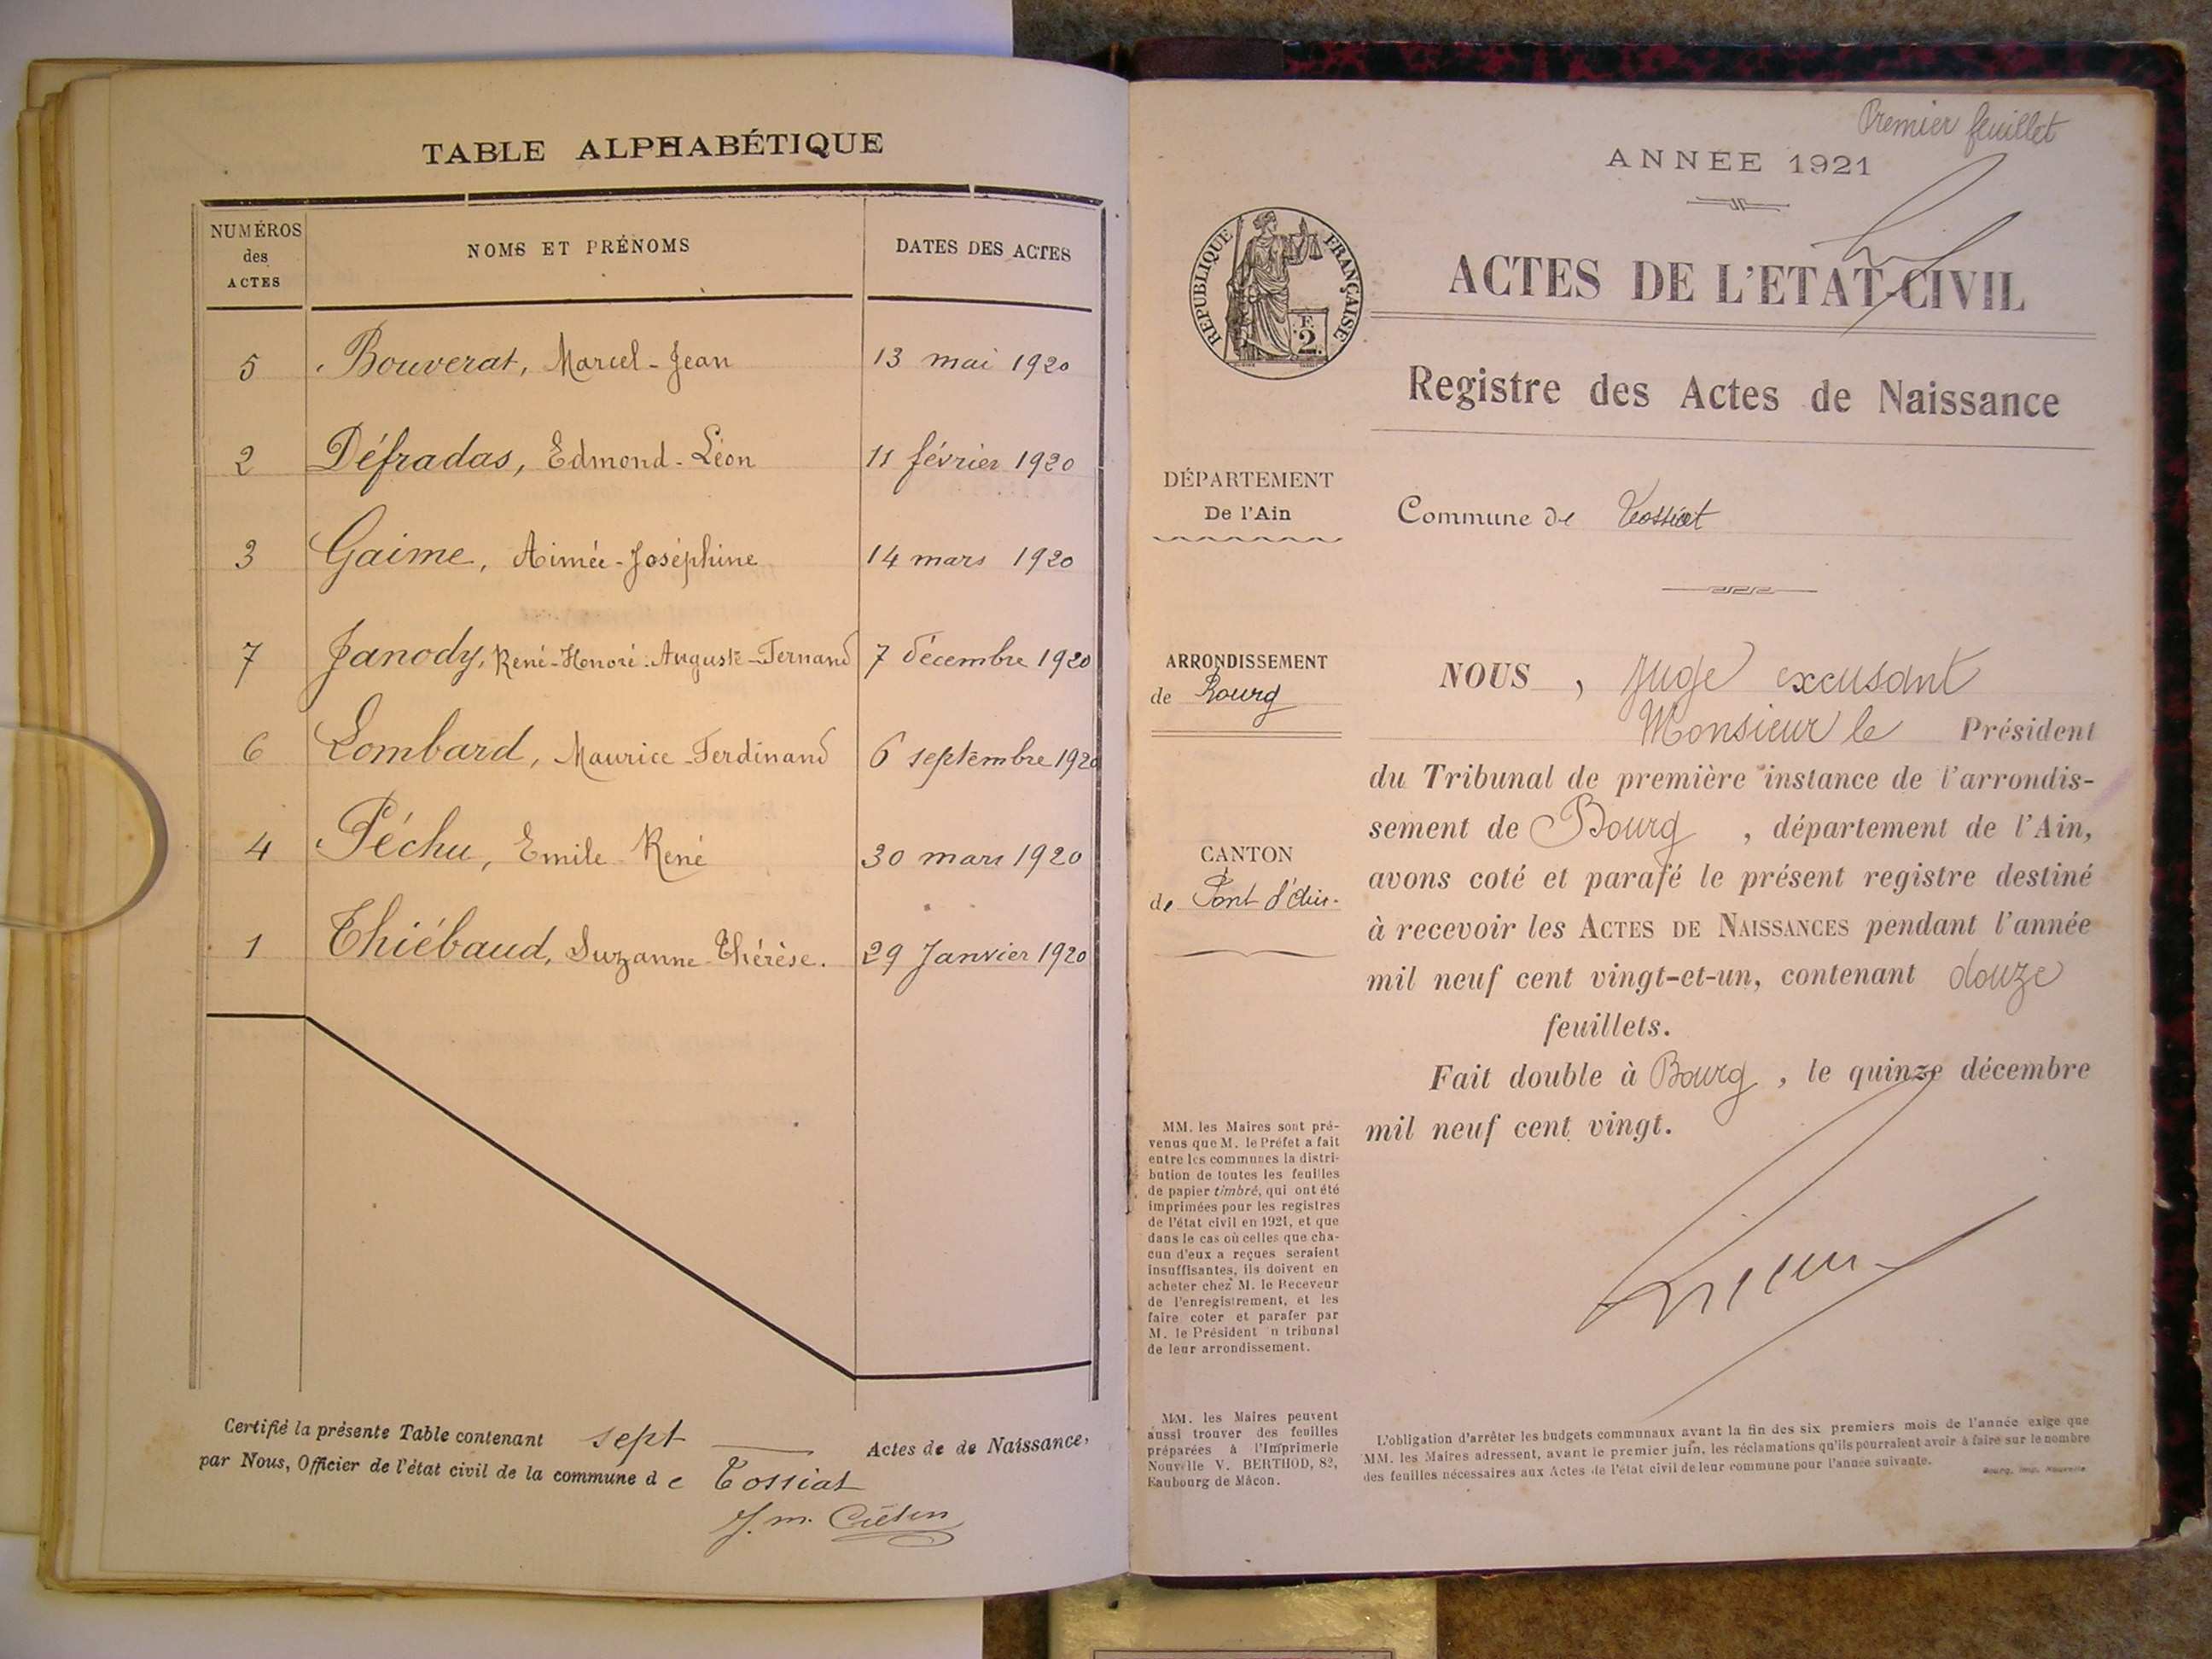 TABLE ALPHABÉTIQUE
NUMÉROS
des
ACTES
NOMS ET PRÉNOMS
DATES DES ACTES
5 Bouverat, Marcel-Jean 13 mai 1920
2 Défradas, Edmond-Léon 11 février 1920
3 Gaime, Aimée-Joséphine 14 mars 1920
7 Janody, René-Honoré-Auguste-Fernand 7 décembre 1920
6 Lombard, Maurice-Ferdinand 6 septembre 1920
4 Péchu, Emile René 30 mars 1920
1 Thiébaud, Suzanne-Thérèse. 29 Janvier 1920
Certifié la présente Table contenant sept Actes de de Naissance,
par Nous, Officier de l'état civil de la commune d e Tossiat
J. m.
Premier feuillet
ANNÉE 1921
RÉPUBLIQUE FRANÇAISE
F.
2.
ACTES DE L'ETAT-CIVIL
Registre des Actes de Naissance
DÉPARTEMENT
De l'Ain
Commune de Tossiat
ARRONDISSEMENT
de Bourg
CANTON
de Pont d'Ain.
NOUS , juge excusant
Monsieur le Président
du Tribunal de première instance de l'arrondis-
sement de Bourg , département de l'Ain,
avons coté et parafé le présent registre destiné
à recevoir les ACTES DE NAISSANCES pendant l'année
mil neuf cent vingt-et-un, contenant douze
feuillets.
Fait double à Bourg , le quinze décembre
mil neuf cent vingt.
MM. les Maires sont pré-
venus que M. le Préfet a fait
entre les communes la distri-
bution de toutes les feuilles
de papier timbré, qui ont été
imprimées pour les registres
de l'état civil en 1921, et que
dans le cas où celles que cha-
cun d'eux a reçues seraient
insuffisantes, ils doivent en
acheter chez M. le Receveur
de l'enregistrement, et les
faire coter et parafer par
M. le Président n tribunal
de leur arrondissement.
MM. les Maires peuvent
aussi trouver des feuilles
préparées à l'Imprimerie
Nouvelle V. BERTHOD, 82,
Faubourg de Mâcon.
L'obligation d'arrêter les budgets communaux avant la fin des six premiers mois de l'année exige que
MM. les Maires adressent, avant le premier juin, les réclamations qu'ils pourraient avoir à faire sur le nombre
des feuilles nécessaires aux Actes de l'état civil de leur commune pour l'année suivante.
Bourg, Imp. Nouvelle